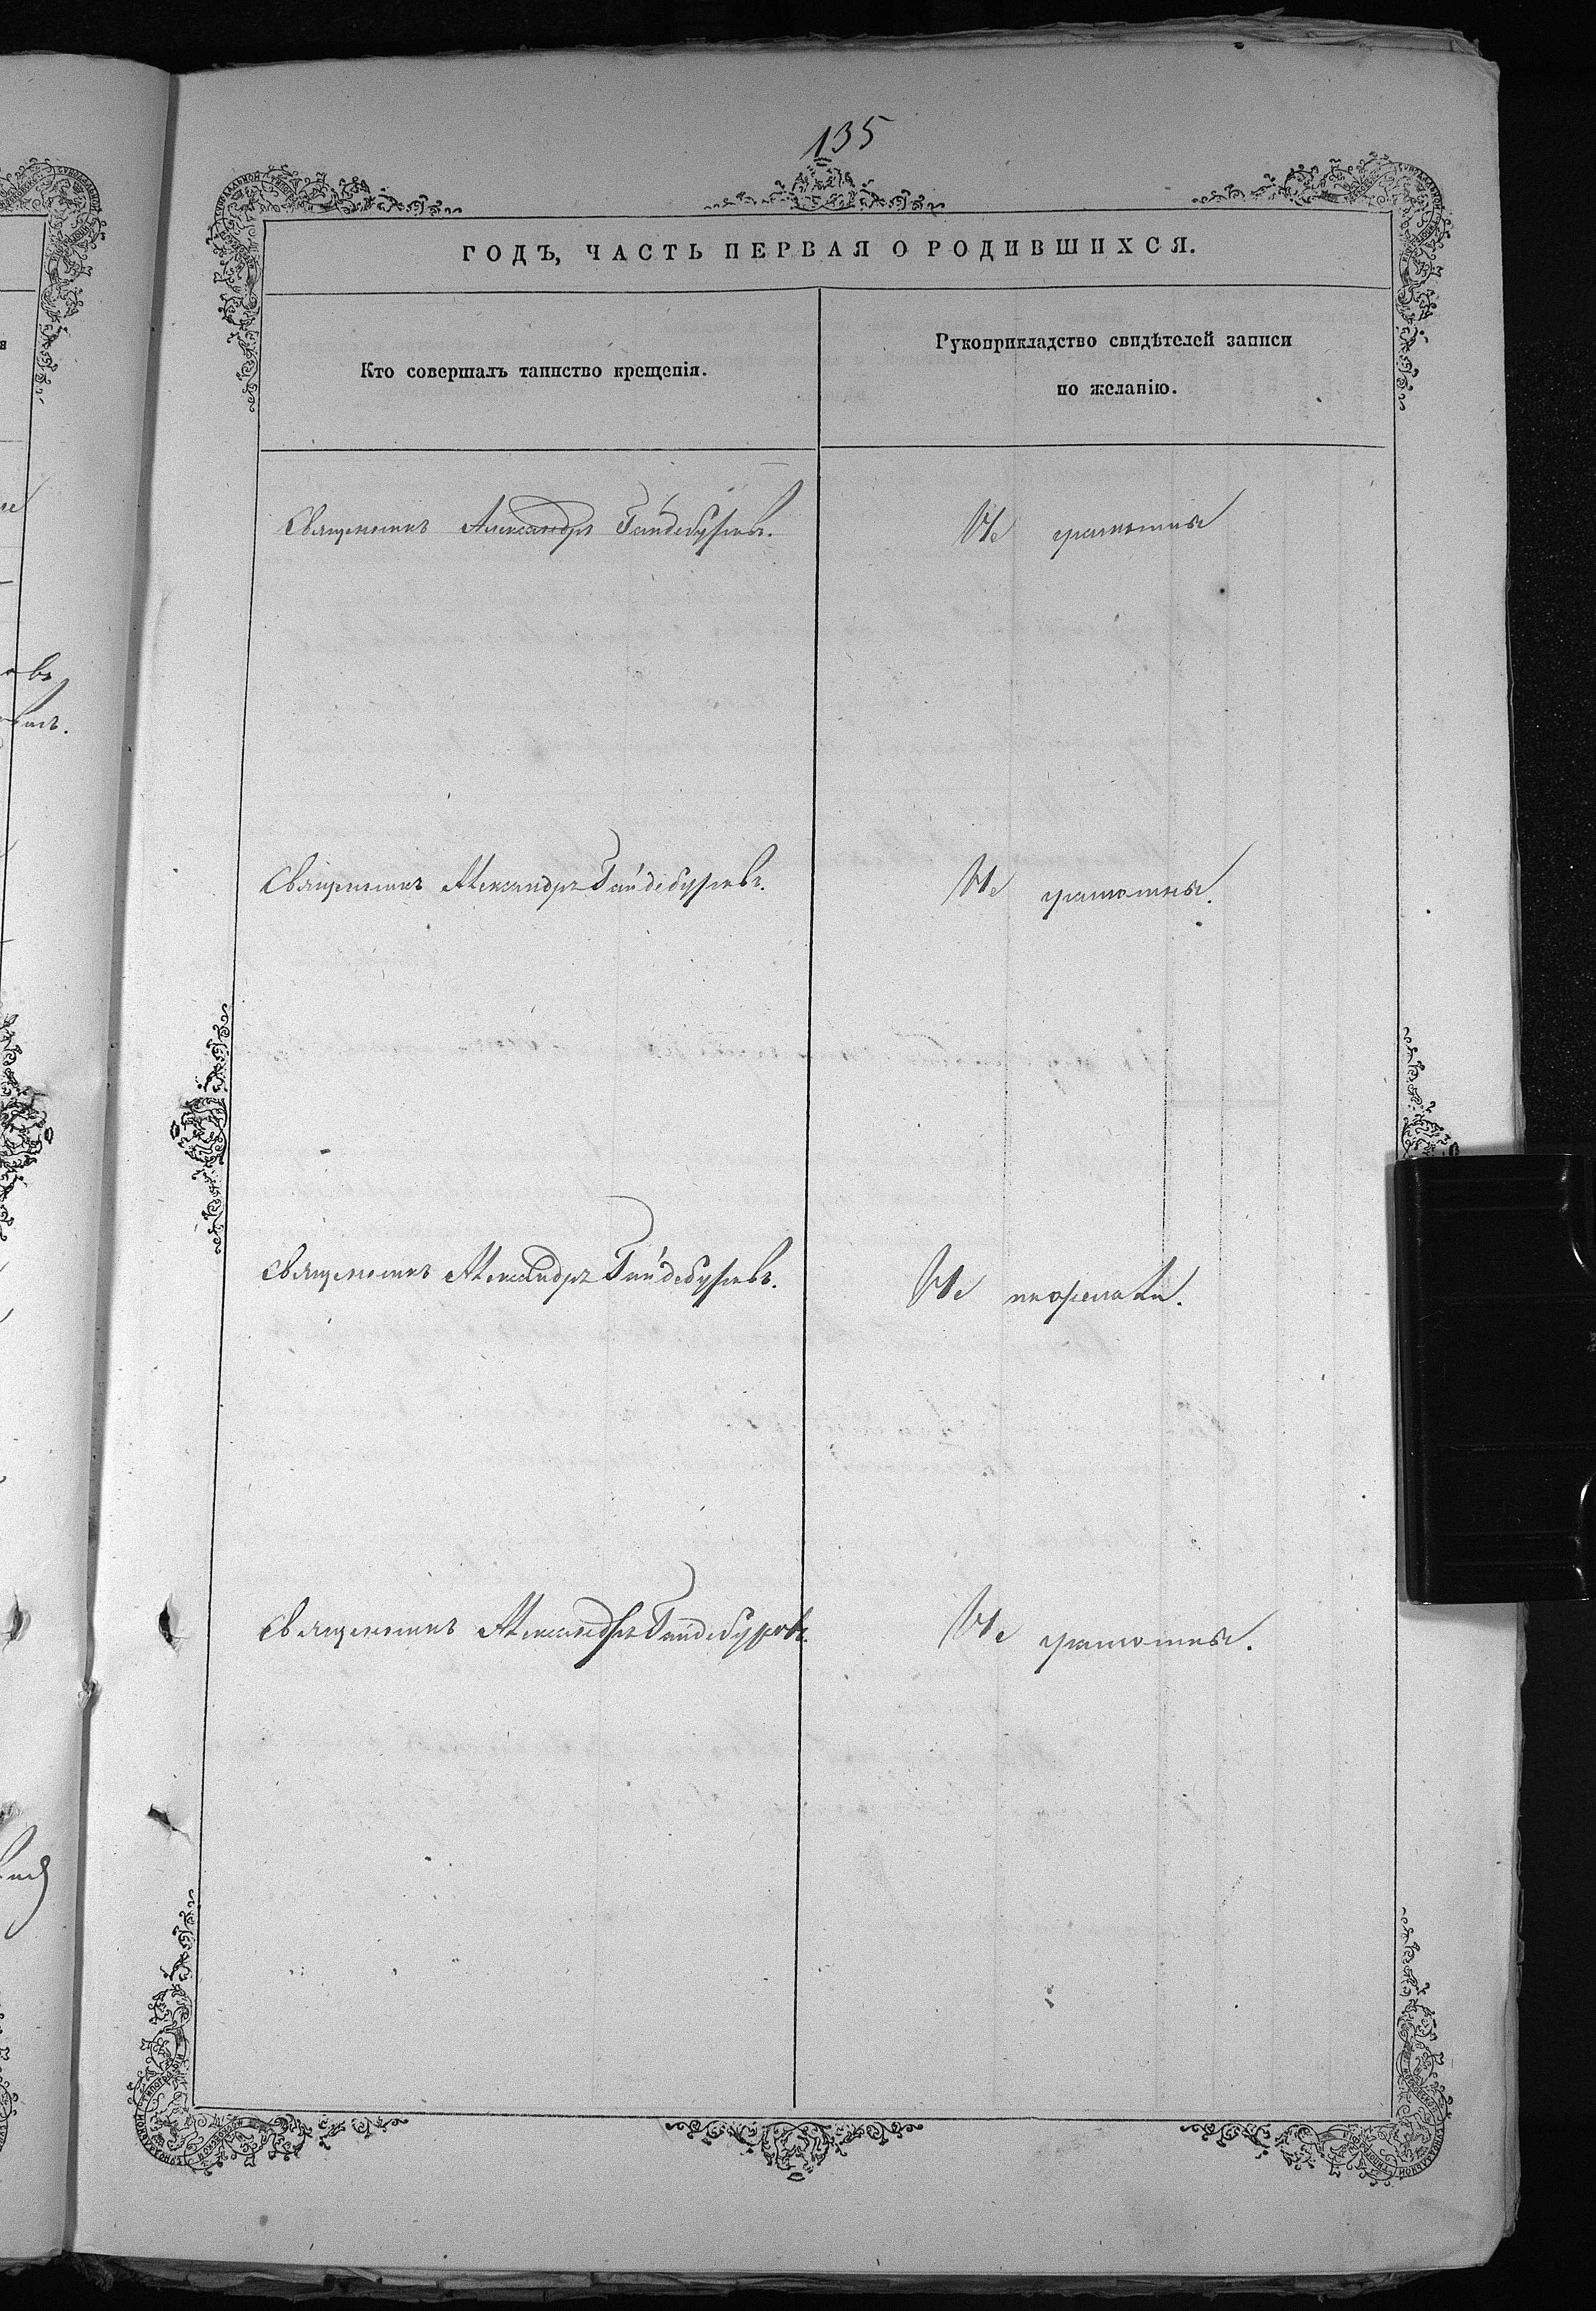 135
ГОДЪ, ЧАСТЬ ПЕРВАЯ О РОДИВШИХСЯ.
Кто совершалъ таинство крещенія.
Рукоприкладство свидѣтелей записи
по желанію.
Священникъ Александръ Гайдебуровъ.
Не грамотны
Священникъ Александръ Гайдебуровъ.
Не грамотны.
Священникъ Александръ Гайдебуровъ.
Не
Священникъ Александръ Гайдебуровъ.
Не грамотны.